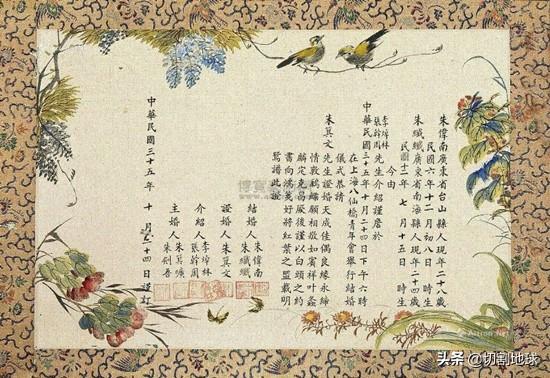 朱偉南廣東省台山縣人現年二十八歲
民國六年十二月初八日 時生
朱孅孅廣東省南海縣人現年二十四歲
民國十二年 七月十五日 時生
今由
李埠林
張幹周
先生介紹謹居於
中華民國三十五年十月二十四日下午六時
在上海八仙橋青年會舉行結婚
儀式恭請
朱莫文先生證婚天成佳偶良緣永締
情敦鶼鰈願相敬如賓祥叶螽
麟定克昌厥後謹以白頭之約
書向鴻箋好將紅葉之盟載明
鴛譜此證
結婚人
朱偉南
朱孅孅
證婚人 朱莫文
介紹人
李埠林
張幹周
主婚人
朱劍吾
中華民國三十五年 十月二十四日謹訂
头条 @切割地球